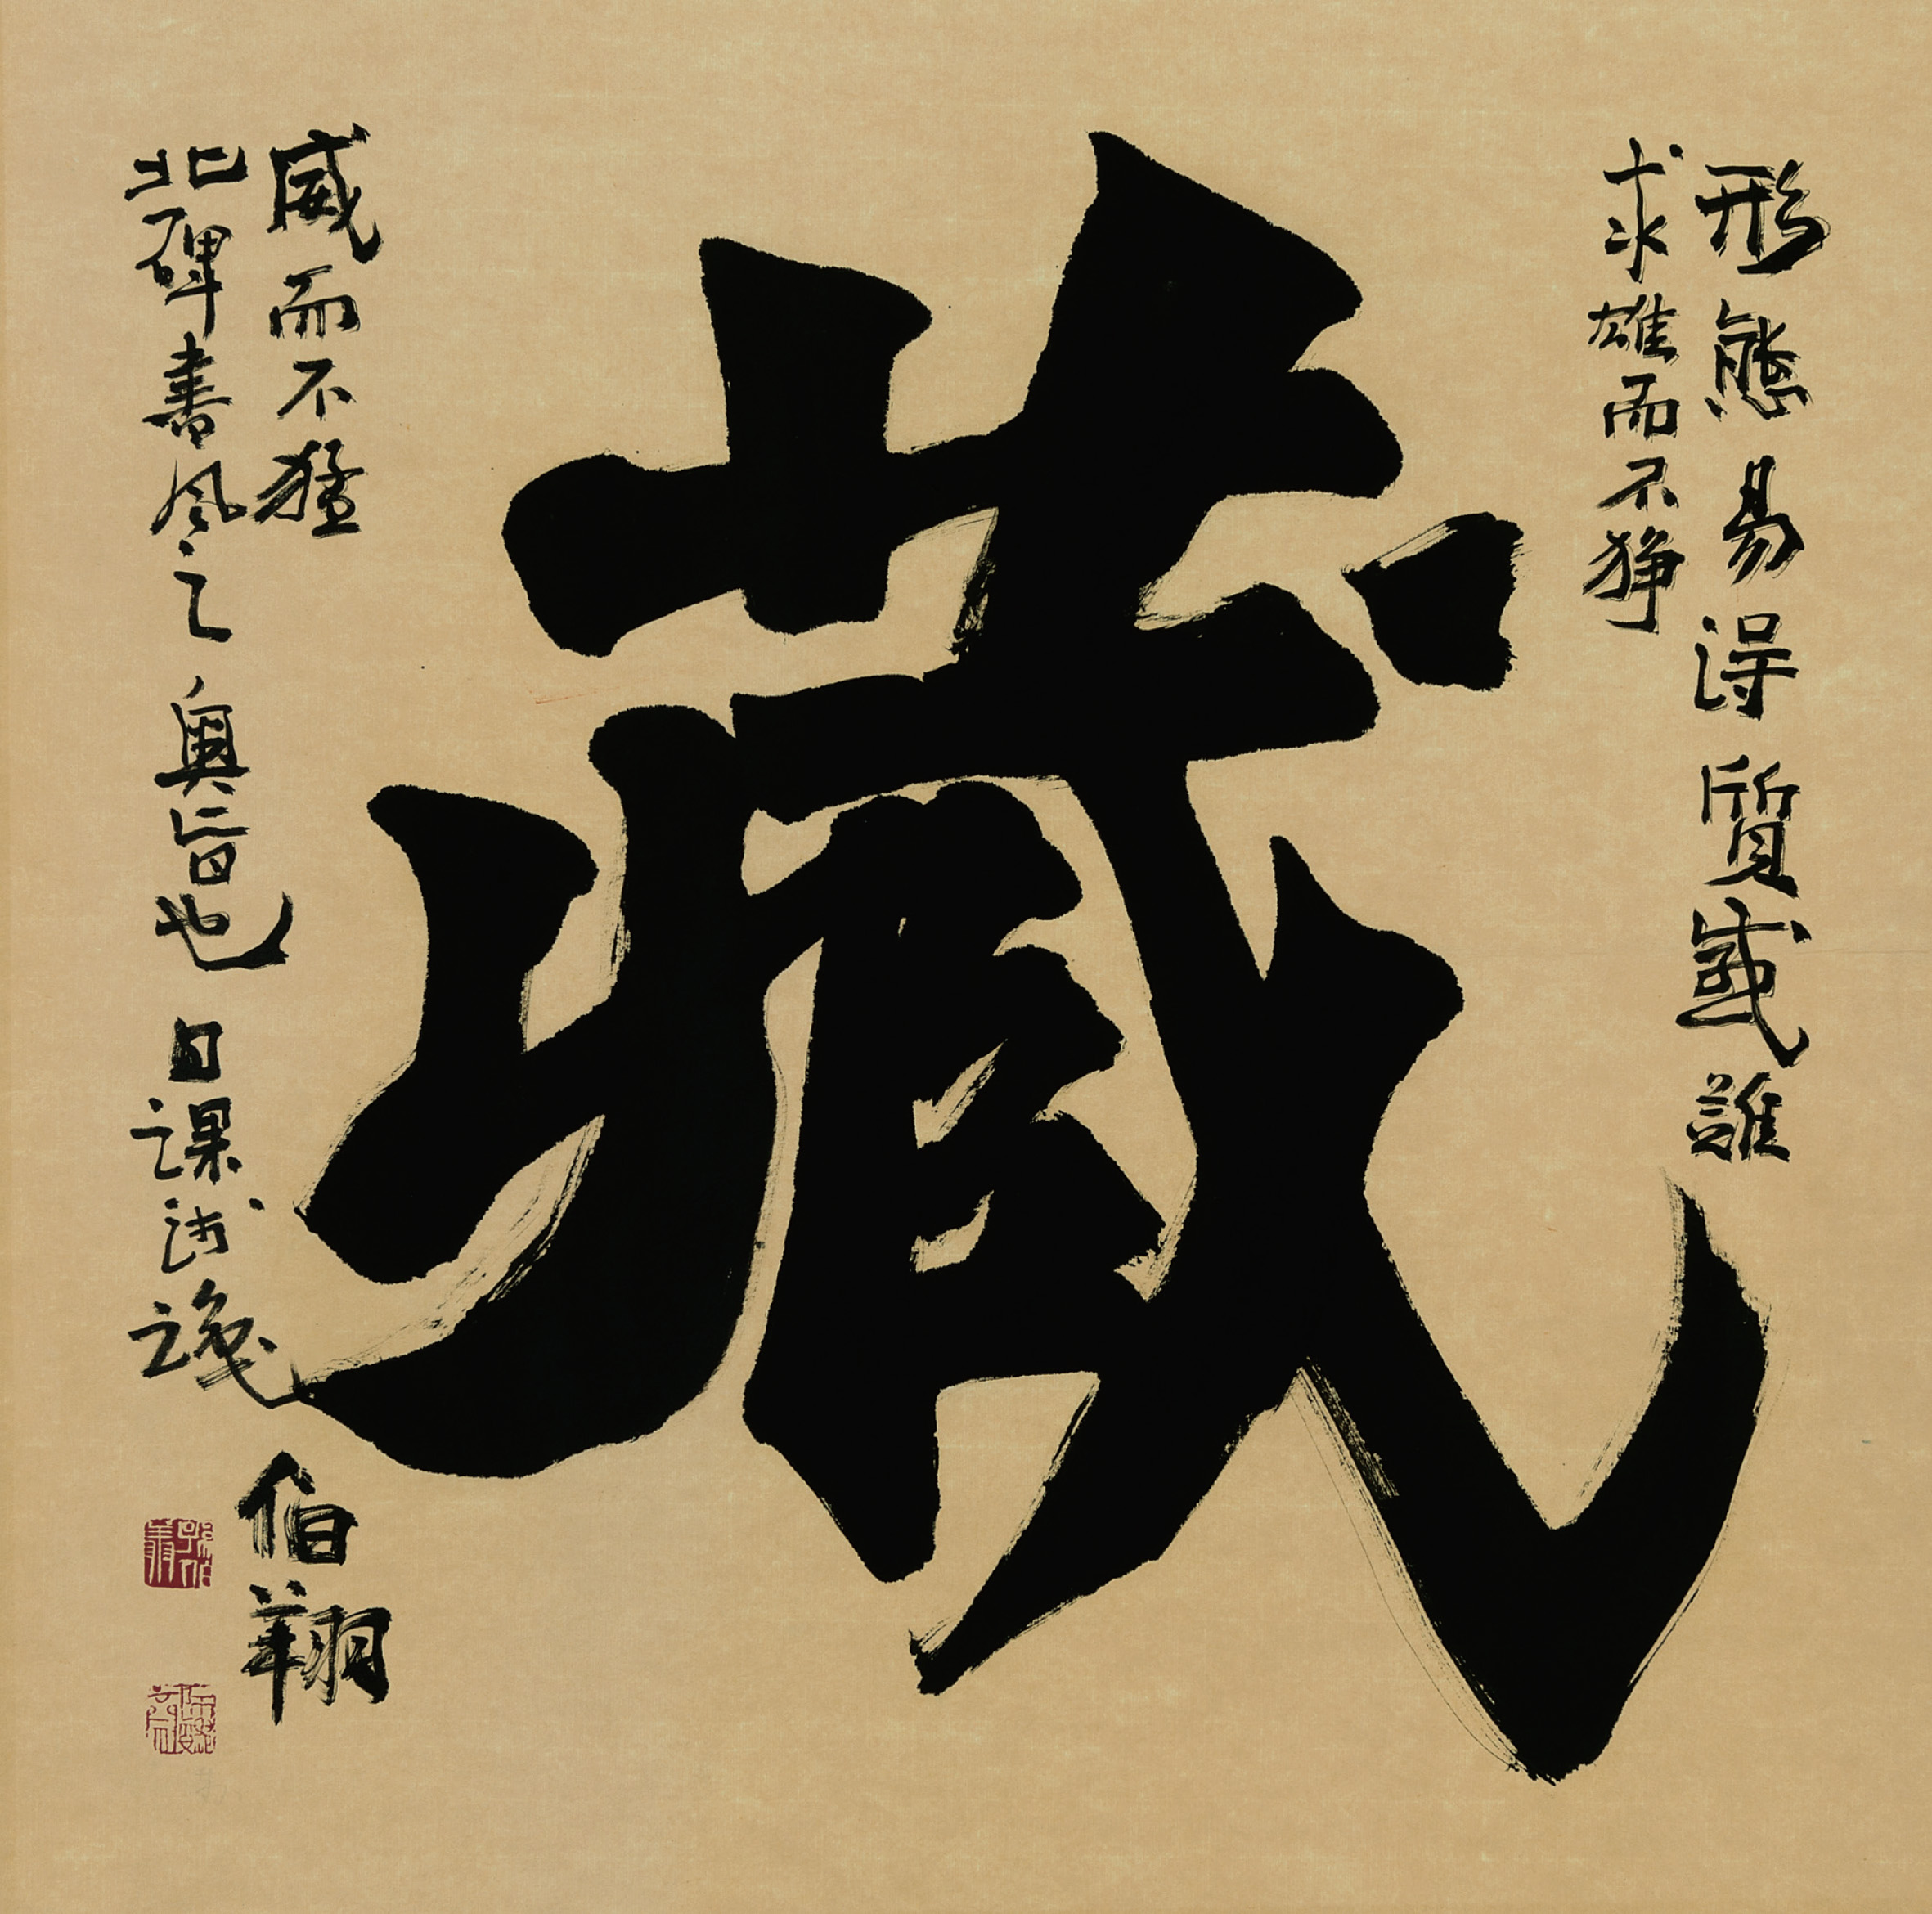 藏
形態易得質感誰
求雄而不狰
威而不猛
北碑書風之奥旨也日課浅
伯翔